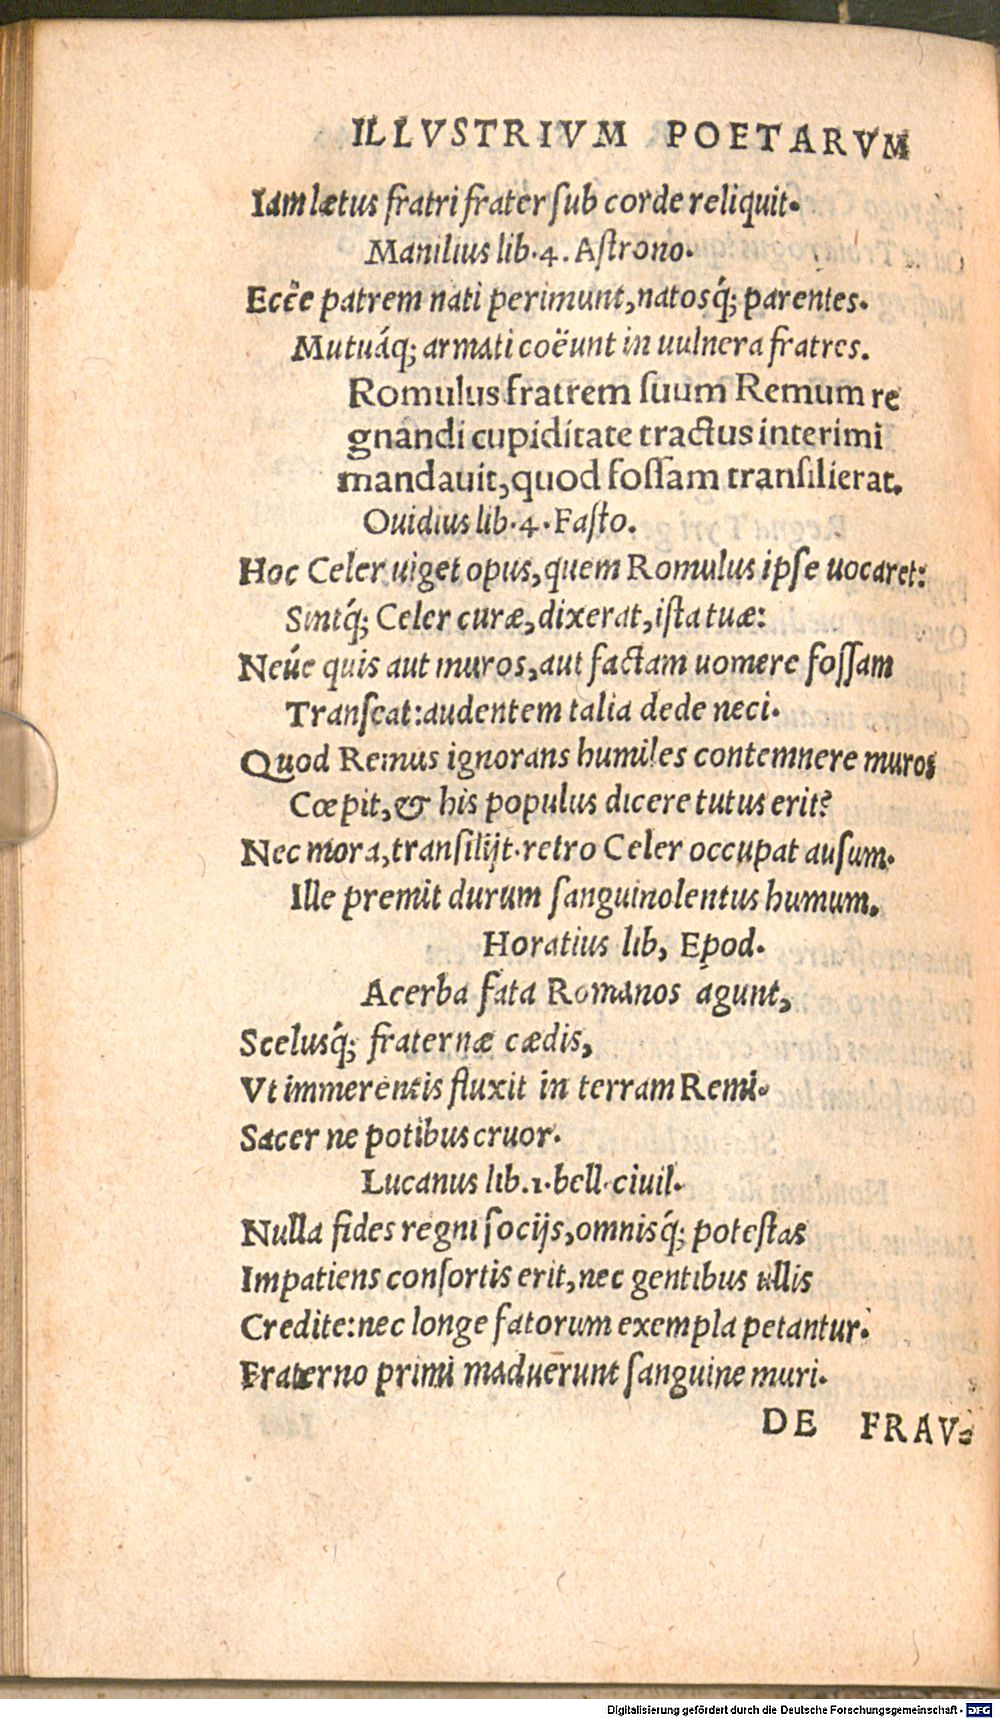 ILLVSTRIVM POETARVM
Iam lætus fratri frater sub corde reliquit.
Manilius lib.4. Astrono.
Ecce patrem nati perimunt, natosq́; parentes.
Mutuáq; armati coëunt in uulnera fratres.
Romulus fratrem suum Remum re
gnandi cupiditate tractus interimi
mandauit, quod fossam transilierat.
Ouidius lib.4. Fasto.
Hoc Celer uiget opus, quem Romulus ipse uocaret:
Sintq́; Celer curæ, dixerat, ista tuæ:
Neúe quis aut muros, aut factam uomere fossam
Transeat: audentem talia dede neci.
Quod Remus ignorans humiles contemnere muros
Cœpit, & his populus dicere tutus erit?
Nec mora, transilijt. retro Celer occupat ausum.
Ille premit durum sanguinolentus humum.
Horatius lib, Epod.
Acerba fata Romanos agunt,
Scelusq́; fraternæ cædis,
Vt immerentis fluxit in terram Remi.
Sacer nepotibus cruor.
Lucanus lib.1. bell. ciuil.
Nulla fides regni socijs, omnisq́; potestas
Impatiens consortis erit, nec gentibus ullis
Credite: nec longe fatorum exempla petantur.
Fraterno primi maduerunt sanguine muri.
DE FRAV-
Digitalisierung gefördert durch die Deutsche Forschungsgemeinschaft - DFG